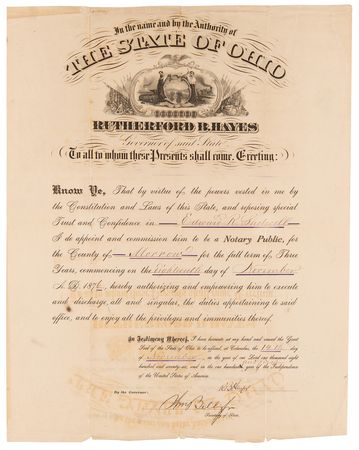 In the name and by the Authority of
THE STATE OF OHIO
RUTHERFORD B. HAYES
Governor of said State
To all to whom these Presents shall come, Greeting:
Know Ye, That by virtue of the powers vested in me by
the Constitution and Laws of this State, and reposing special
Trust and Confidence in Edward R.
I do appoint and commission him to be a Notary Public, for
the County of Morrow for the full term of Three
Years, commencing on the Eighteenth day of November
A. D. 1876, hereby authorizing and empowering him to execute
and discharge, all and singular, the duties appertaining to said
office, and to enjoy all the privileges and immunities thereof.
In Testimony Whereof, I have hereunto set my hand and caused the Great
Seal of the State of Ohio to be affixed, at Columbus, the 14th
day of November in the year of our Lord one thousand eight
hundred and seventy-six, and in the one hundredth year of the Independence
of the United States of America.
R. B. Hayes
By the Governor:
Secretary of State.